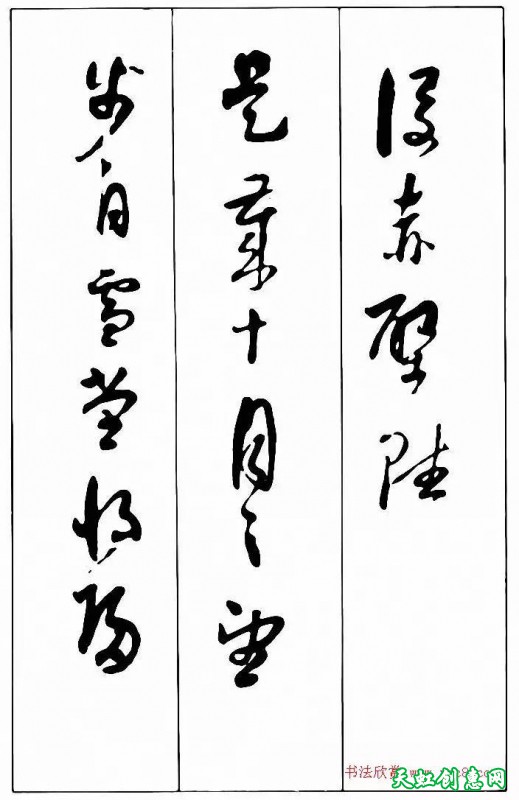 後赤壁賦
是歲十月之望
步自雪堂將歸
书法欣赏
天虹创意网